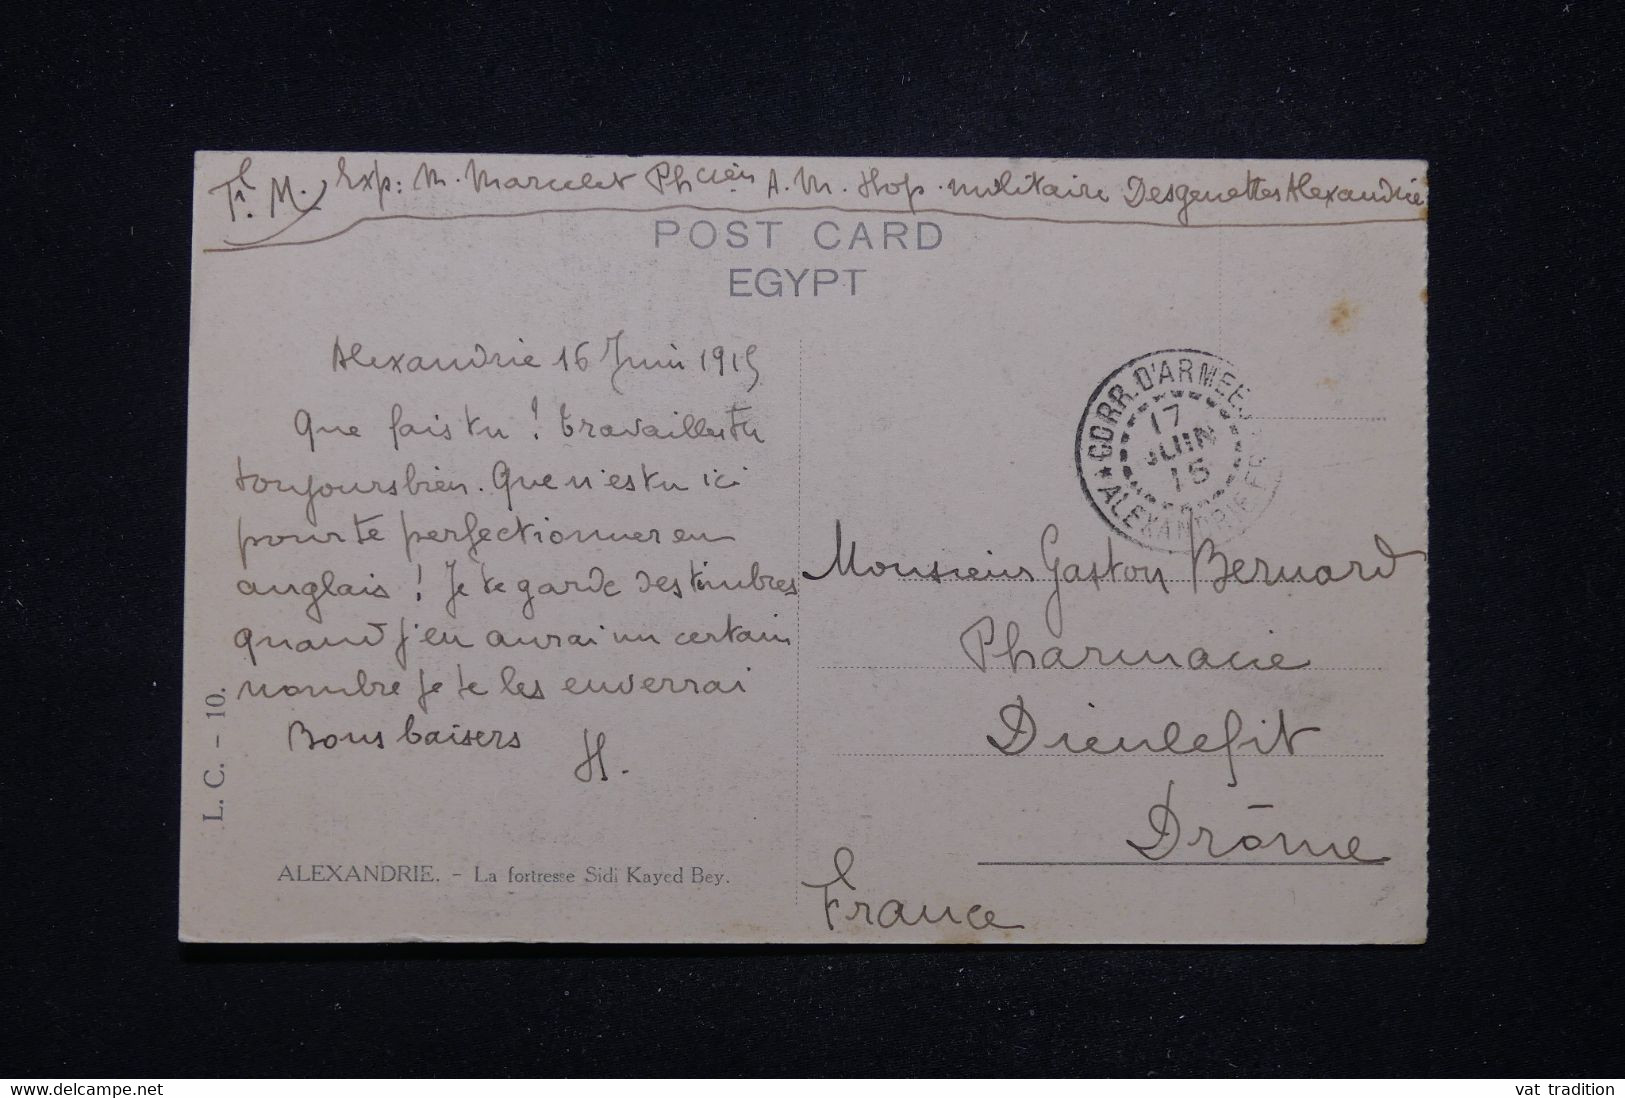 Fr. M. Exp: M. Marcelet Phcien A. M. Hop. militaire Desgenettes Alexandrie
POST CARD
EGYPT
Alexandrie 16 Juin 1915
Que fais tu ! travailles tu
toujours bien. Que n'es tu ici
pour te perfectionner en
anglais ! Je te garde des timbres
quand j'en aurai un certain
nombre je te les enverrai
Bons baisers
H.
L. C. - 10.
ALEXANDRIE. - La fortresse Sidi Kayed Bey.
CORR. D'ARMEES
17
JUIN
15
* ALEXANDRIE
Monsieur Gaston Bernard
Pharmacie
Dieulefit
Drôme
France
www.delcampe.net
vat tradition